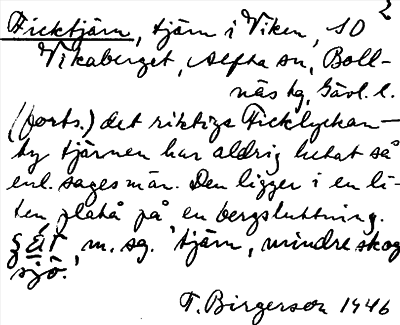 2
Ficktjärn, tjärn i Viken, SO
Vikaberget, Alfta sn, Boll-
näs tg, Gävl. l.
(forts.) det riktiga Ficklyckan—
ty tjärnen har aldrig hetat så
enl. sages män. Den ligger i en li-
ten platå på en bergsluttning.
m. sg. tjärn, mindre skog
sjö.
F. Birgerson 1946